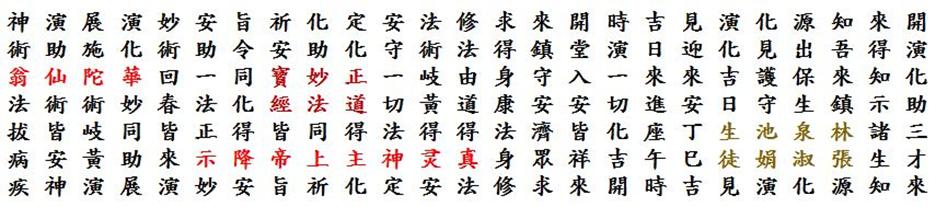 神演展演妙安旨祈化定安法修求來開時吉見演化源知來開
術助施化術助令安助化守術法得鎮堂演日迎化見出吾得演
翁仙陀華回一同寶妙正一岐由身守入一來來吉護保來知化
法術術妙春法化經法道切黃道康安安切進安日守生鎮示助
拔皆岐同皆正得皆同得法得得法濟皆化座丁生池泉林諸三
病安黃助來示降帝上主神灵真身眾祥吉午巳徒娟淑張生才
疾神演展演妙安旨祈化定安法修求來開時吉見演化源知來